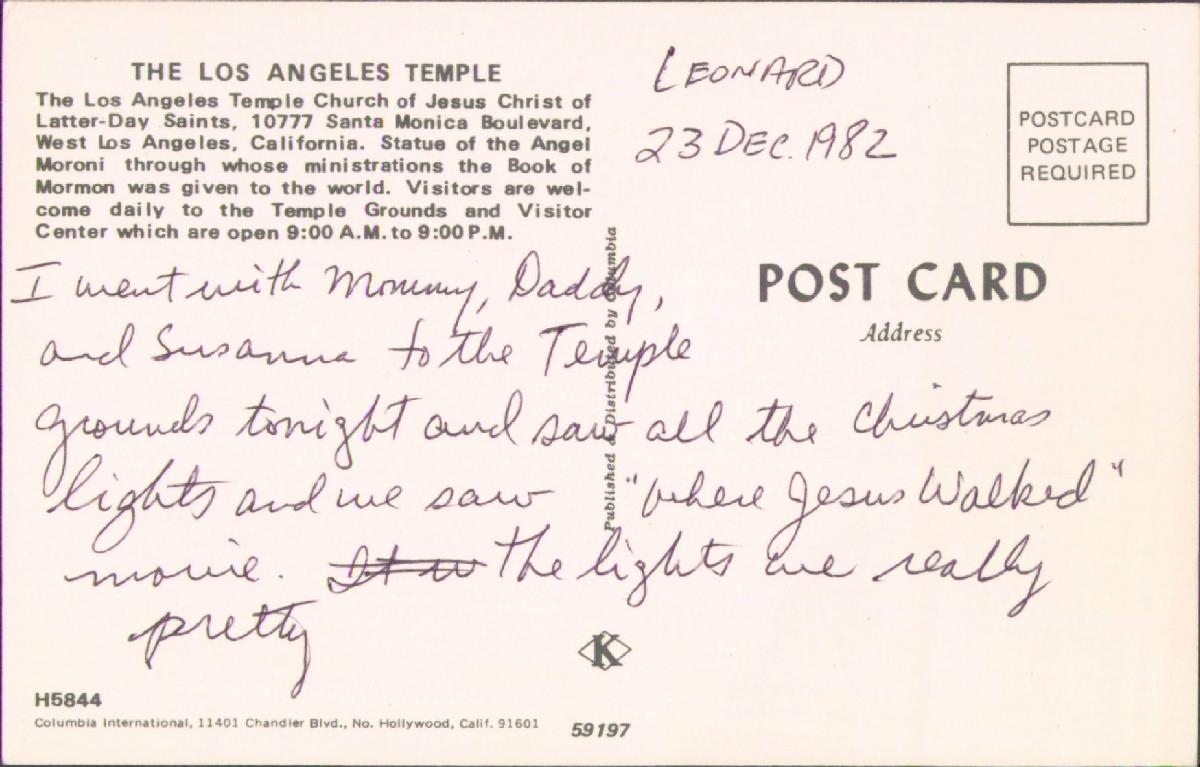 THE LOS ANGELES TEMPLE
The Los Angeles Temple Church of Jesus Christ of
Latter-Day Saints, 10777 Santa Monica Boulevard,
West Los Angeles, California. Statue of the Angel
Moroni through whose ministrations the Book of
Mormon was given to the world. Visitors are wel-
come daily to the Temple Grounds and Visitor
Center which are open 9:00 A.M. to 9:00 P.M.
LEONARD
23 DEC. 1982
POSTCARD
POSTAGE
REQUIRED
POST CARD
Address
I went with Mommy, Daddy,
and Susanna to the Temple
grounds tonight and saw all the Christmas
lights and we saw "where Jesus Walked"
movie. It w The lights are really
pretty
Published & Distributed by Columbia
K
H5844
Columbia International, 11401 Chandler Blvd., No. Hollywood, Calif. 91601
59197